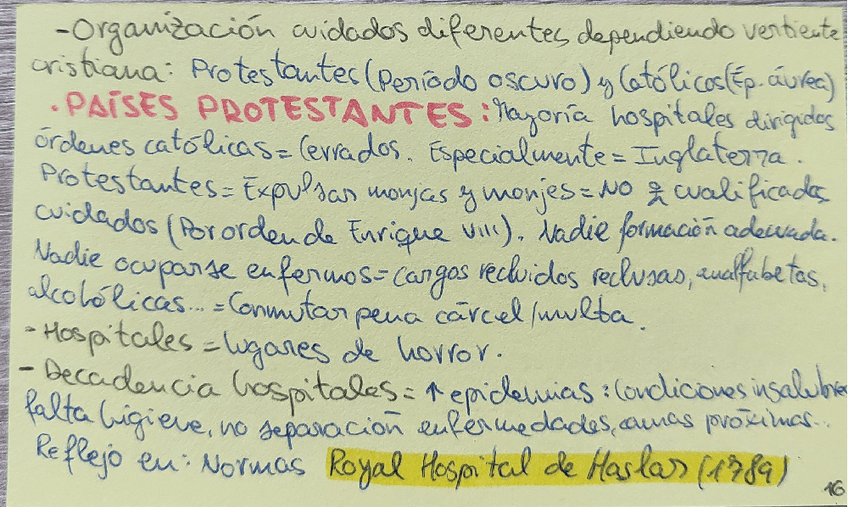 -Organización cuidados diferentes dependiendo vertiente
cristiana: Protestantes (Período oscuro) y Católicos (Ép. áurea)
. PAÍSES PROTESTANTES: Mayoría hospitales dirigidos
órdenes católicas = Cerrados. Especialmente = Inglaterra.
Protestantes = Expulsan monjas y monjes = NO cualificadas
cuidados (Por orden de Enrique VIII). Nadie formación adecuada.
Nadie ocuparse enfermos = cargos recluidos reclusas, analfabetas,
alcohólicas... = Conmutar pena cárcel/multa.
- Hospitales = lugares de horror.
- Decadencia hospitales = ↑ epidemias: Condiciones insalubres
falta higiene, no separación enfermedades, camas próximas...
Reflejo en: Normas Royal Hospital de Haslar (1789)
16